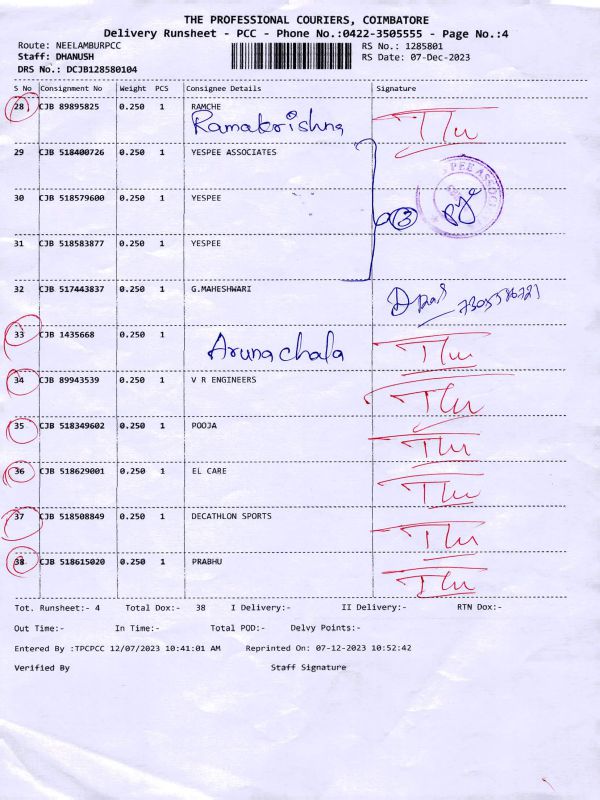 THE PROFESSIONAL COURIERS, COIMBATORE
Delivery Runsheet - PCC - Phone No.:0422-3505555 - Page No.:4
Route: NEELAMBURPCC RS No.: 1285801
Staff: DHANUSH RS Date: 07-Dec-2023
DRS No.: DCJB128580104
S No Consignment No Weight PCS Consignee Details Signature
28 CJB 89895825 0.250 1 RAMCHE
Ramakrishna
29 CJB 518400726 0.250 1 YESPEE ASSOCIATES
30 CJB 518579600 0.250 1 YESPEE
3
31 CJB 518583877 0.250 1 YESPEE
32 CJB 517443837 0.250 1 G.MAHESHWARI
33 CJB 1435668 0.250 1
Arunachala
34 CJB 89943539 0.250 1 V R ENGINEERS
35 CJB 518349602 0.250 1 POOJA
36 CJB 518629001 0.250 1 EL CARE
37 CJB 518508849 0.250 1 DECATHLON SPORTS
38 CJB 518615020 0.250 1 PRABHU
Tot. Runsheet:- 4 Total Dox:- 38 I Delivery:- II Delivery:- RTN Dox:-
Out Time:- In Time:- Total POD:- Delvy Points:-
Entered By :TPCPCC 12/07/2023 10:41:01 AM Reprinted On: 07-12-2023 10:52:42
Verified By Staff Signature